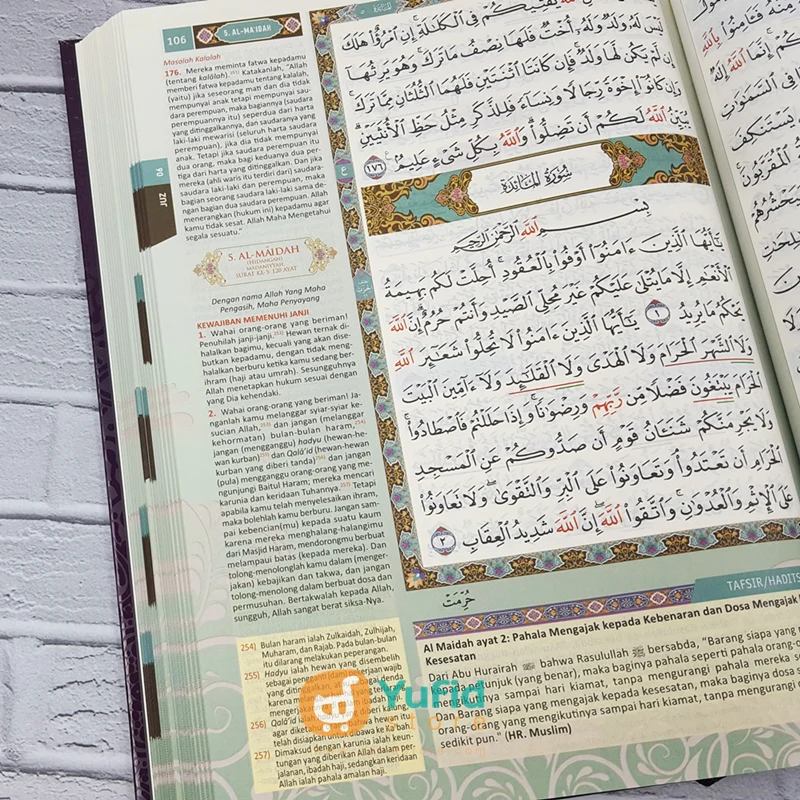 106
5. AL-MA'IDAH
Masalah Kalalah
176. Mereka meminta fatwa kepadamu
(tentang kalālah). Katakanlah, "Allah
memberi fatwa kepadamu tentang kalalah,
(yaitu) jika seseorang mati dan dia tidak
mempunyai anak tetapi mempunyai sau-
dara perempuan, maka bagiannya (saudara
perempuannya itu) seperdua dari harta
yang ditinggalkannya, dan saudaranya yang
laki-laki mewarisi (seluruh harta saudara
perempuan), jika dia tidak mempunyai
anak. Tetapi jika saudara perempuan itu
dua orang, maka bagi keduanya dua per-
tiga dari harta yang ditinggalkan. Dan jika
mereka (ahli waris itu terdiri dari) saudara-
saudara laki-laki dan perempuan, maka
bagian seorang saudara laki-laki sama de-
ngan bagian dua saudara perempuan. Allah
menerangkan (hukum ini) kepadamu agar
kamu tidak sesat. Allah Maha Mengetahui
segala sesuatu."
JUZ 06
5. AL-MĀIDAH
(HIDANGAN)
MADANIYYAH
SURAT KE-5: 120 AYAT
Dengan nama Allah Yang Maha
Pengasih, Maha Penyayang
KEWAJIBAN MEMENUHI JANJI
1. Wahai orang-orang yang beriman!
Penuhilah janji-janji. Hewan ternak di-
halalkan bagimu, kecuali yang akan dise-
butkan kepadamu, dengan tidak meng-
halalkan berburu ketika kamu sedang ber-
ihram (haji atau umrah). Sesungguhnya
Allah menetapkan hukum sesuai dengan
yang Dia kehendaki.
2. Wahai orang-orang yang beriman! Ja-
nganlah kamu melanggar syiar-syiar ke-
sucian Allah, dan jangan (melanggar
kehormatan) bulan-bulan haram,254)
jangan (mengganggu) hadyu (hewan-he-
wan kurban)255) dan Qalā'id (hewan-hewan
kurban yang diberi tanda)256) dan jangan
(pula) mengganggu orang-orang yang me-
ngunjungi Baitul Haram; mereka mencari
karunia dan keridaan Tuhannya.257) Tetapi
apabila kamu telah menyelesaikan ihram,
maka bolehlah kamu berburu. Jangan sam-
pai kebencian(mu) kepada suatu kaum
karena mereka menghalang-halangimu
dari Masjidil Haram, mendorongmu berbuat
melampaui batas (kepada mereka). Dan
tolong-menolonglah kamu dalam (menger-
jakan) kebajikan dan takwa, dan jangan
tolong-menolong dalam berbuat dosa dan
permusuhan. Bertakwalah kepada Allah,
sungguh, Allah sangat berat siksa-Nya.
254) Bulan haram ialah Zulkaidah, Zulhijah,
Muharam, dan Rajab. Pada bulan-bulan
itu dilarang melakukan peperangan.
255) Hadyu ialah hewan yang disembelih
sebagai pengganti (dam)
yang
256) Qalā'id
agar
telah disiapkan untuk dibawa ke Ka'bah.
257) Dimaksud dengan karunia ialah keun-
tungan yang diberikan Allah dalam per-
jalanan, ibadah haji, sedangkan keridaan
Allah ialah pahala amalan haji.
لَيْسَ لَهُ وَلَدٌ وَلَهُ أُخْتٌ فَلَهَا نِصْفُ مَا تَرَكَ وَهُوَ يَرِثُهَا
إِنْ لَمْ يَكُنْ لَهَا وَلَدٌ فَإِنْ كَانَتَا اثْنَتَيْنِ فَلَهُمَا الثُّلُثَانِ مِمَّا تَرَكَ
وَإِنْ كَانُوا إِخْوَةً رِجَالًا وَنِسَاءً فَلِلذَّكَرِ مِثْلُ حَظِّ الْأُنْثَيَيْنِ
يُبَيِّنُ اللَّهُ لَكُمْ أَنْ تَضِلُّوا وَاللَّهُ بِكُلِّ شَيْءٍ عَلِيمٌ ١٧٦
سُورَةُ المَائِدَةِ
بِسْمِ اللَّهِ الرَّحْمَٰنِ الرَّحِيمِ
يَٰٓأَيُّهَا الَّذِينَ ءَامَنُوٓا أَوْفُوا بِالْعُقُودِ أُحِلَّتْ لَكُمْ بَهِيمَةُ
الْأَنْعَٰمِ إِلَّا مَا يُتْلَىٰ عَلَيْكُمْ غَيْرَ مُحِلِّي الصَّيْدِ وَأَنْتُمْ حُرُمٌ إِنَّ اللَّهَ
يَحْكُمُ مَا يُرِيدُ ١ يَٰٓأَيُّهَا الَّذِينَ ءَامَنُوا لَا تُحِلُّوا شَعَٰٓئِرَ اللَّهِ
وَلَا الشَّهْرَ الْحَرَامَ وَلَا الْهَدْيَ وَلَا الْقَلَٰٓئِدَ وَلَآ ءَآمِّينَ الْبَيْتَ
الْحَرَامَ يَبْتَغُونَ فَضْلًا مِنْ رَبِّهِمْ وَرِضْوَٰنًا وَإِذَا حَلَلْتُمْ فَاصْطَادُوا
وَلَا يَجْرِمَنَّكُمْ شَنَـَٔانُ قَوْمٍ أَنْ صَدُّوكُمْ عَنِ الْمَسْجِدِ
الْحَرَامِ أَنْ تَعْتَدُوا وَتَعَاوَنُوا عَلَى الْبِرِّ وَالتَّقْوَىٰ وَلَا تَعَاوَنُوا
عَلَى الْإِثْمِ وَالْعُدْوَٰنِ وَاتَّقُوا اللَّهَ إِنَّ اللَّهَ شَدِيدُ الْعِقَابِ ٢
حُرِّمَتْ
TAFSIR/HADITS
Al Maidah ayat 2: Pahala Mengajak kepada Kebenaran dan Dosa Mengajak
Kesesatan
Dari Abu Hurairah bahwa Rasulullah ﷺ bersabda, "Barang siapa yang
kepada petunjuk (yang benar), maka baginya pahala seperti pahala orang-
mengikutinya sampai hari kiamat, tanpa mengurangi pahala mereka
Dan Barang siapa yang mengajak kepada kesesatan, maka baginya dosa
orang-orang yang mengikutinya sampai hari kiamat, tanpa mengurangi
sedikit pun." (HR. Muslim)
Yufid
Store